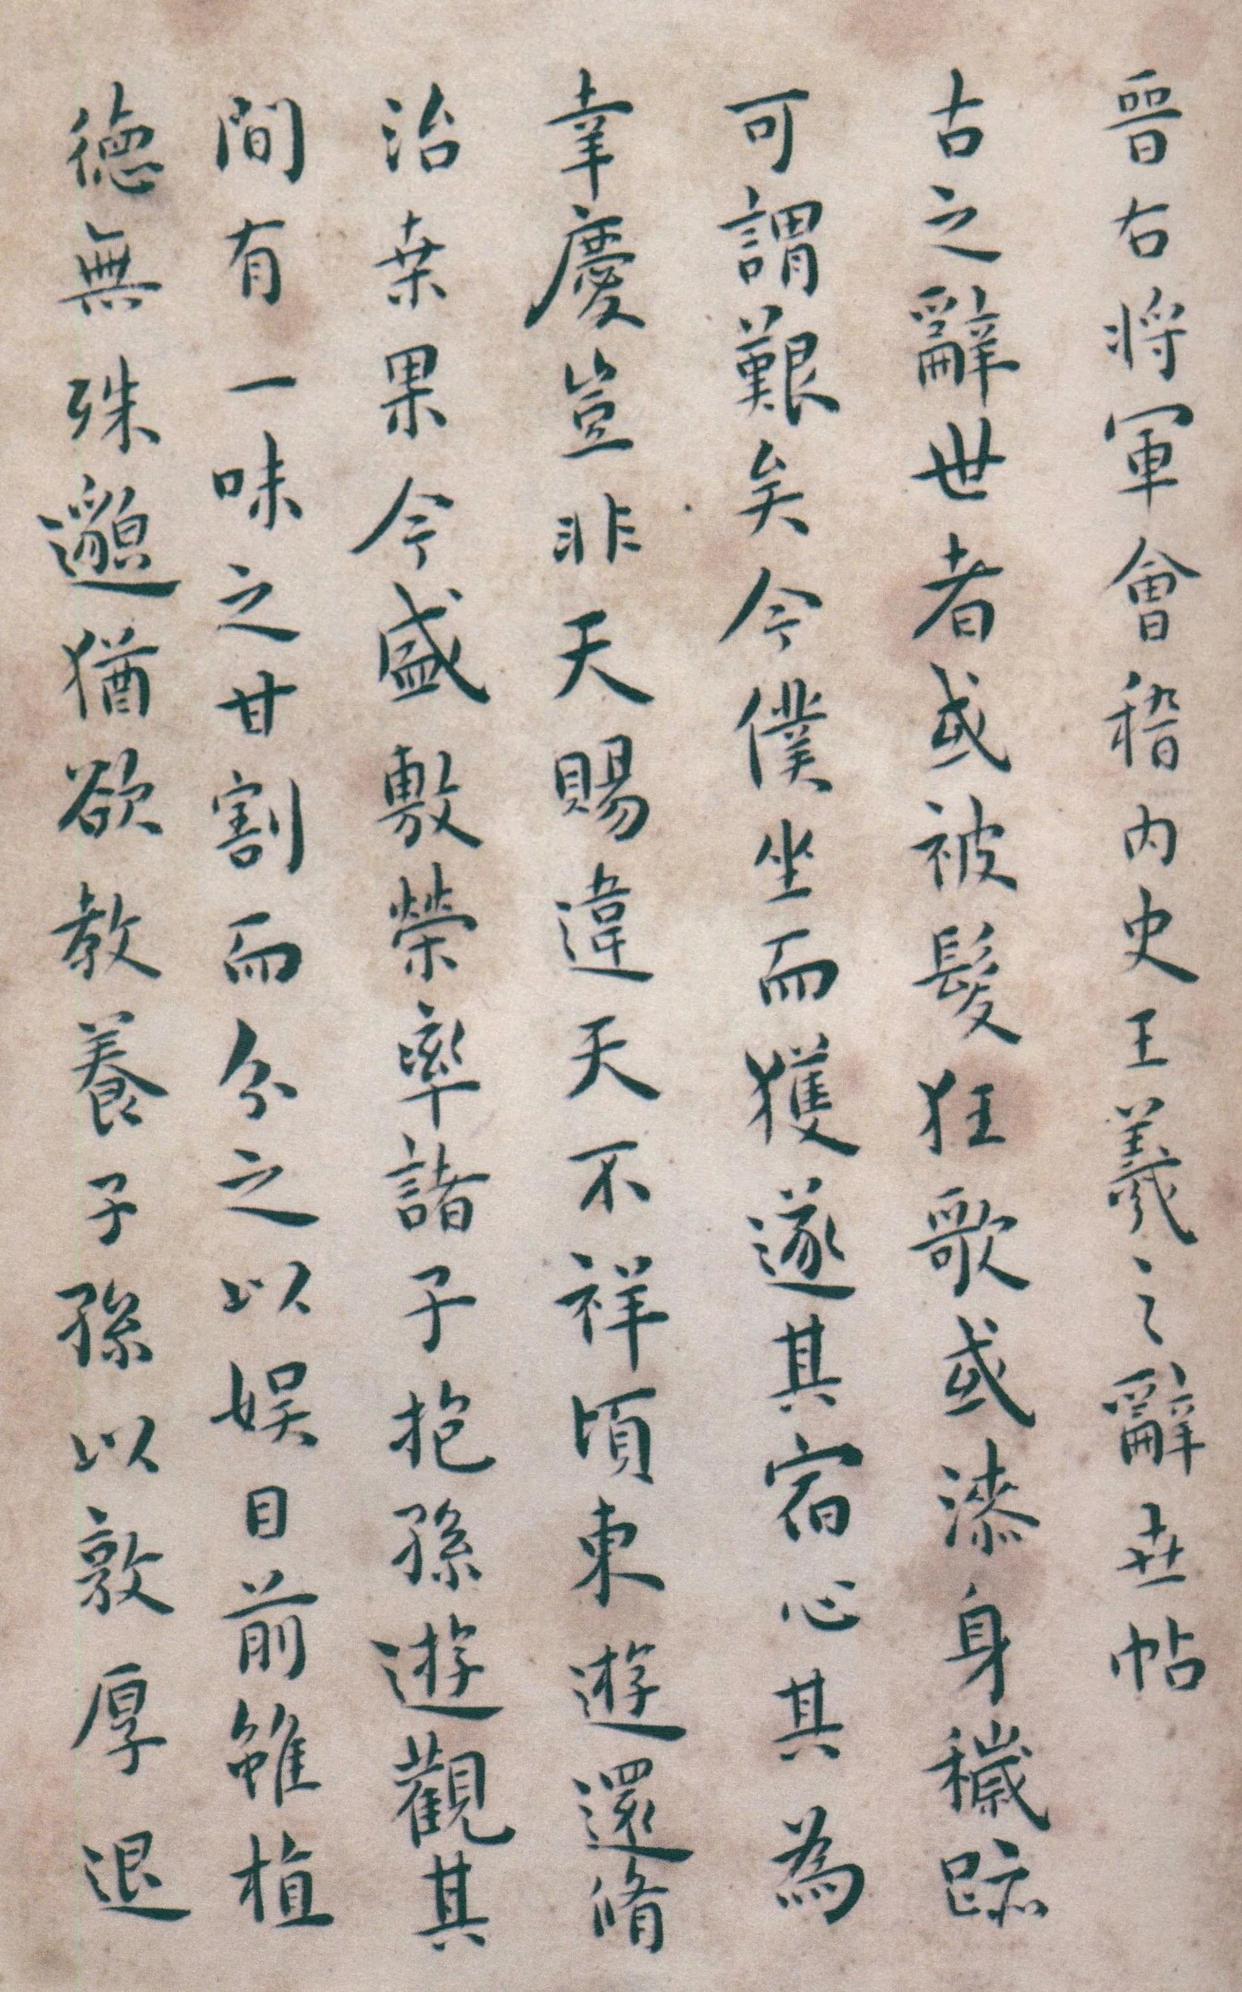 晉右將軍會稽內史王羲之辭世帖
古之辭世者或被髮狂歌或漆身穢跡
可謂艱矣今僕坐而獲遂其宿心其為
幸慶豈非天賜違天不祥頃東遊還脩
治桒果今盛敷榮率諸子抱孫遊觀其
間有一味之甘割而分之以娛目前雖植
德無殊邈猶欲教養子孫以敦厚退